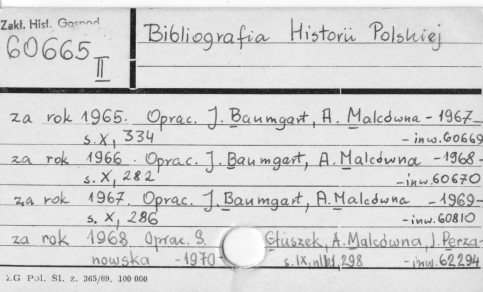 Zakł. Hist. Gospod.
60665
II
Bibliografia Historii Polskiej
za rok 1965. Oprac. J. Baumgart, A. Malcówna - 1967 -
s. X, 334 - inw. 60669
za rok 1966. Oprac. J. Baumgart, A. Malcówna - 1968 -
s. X, 282 - inw. 60670
za rok 1967. Oprac. J. Baumgart, A. Malcówna - 1969 -
s. X, 286 - inw. 60810
za rok 1968. Oprac. S. Głuszek, A. Malcówna, J. Perza-
nowska - 1970 - s. IX, nlb1, 298 - inw. 62294
ZG Pol. Sl. z. 365/69. 100 000